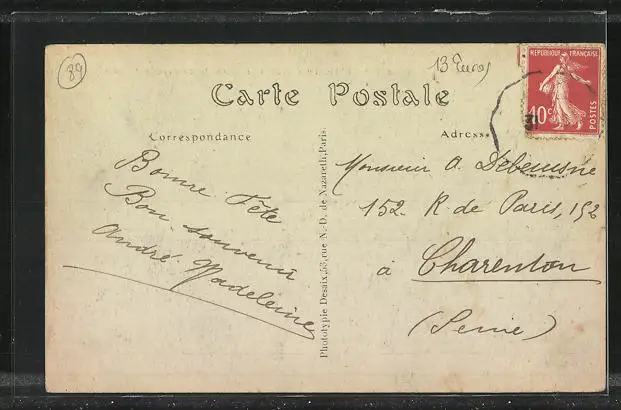 89
13 Euros
REPUBLIQUE FRANÇAISE
10c
POSTES
Carte Postale
Correspondance
Adresse
Bonne Fête
Bon souvenir
André Madeleine
Phototypie Desaix, rue N.-D. de Nazareth, Paris.
Monsieur A.
152 R. de Paris, 152
à Charenton
(Seine)